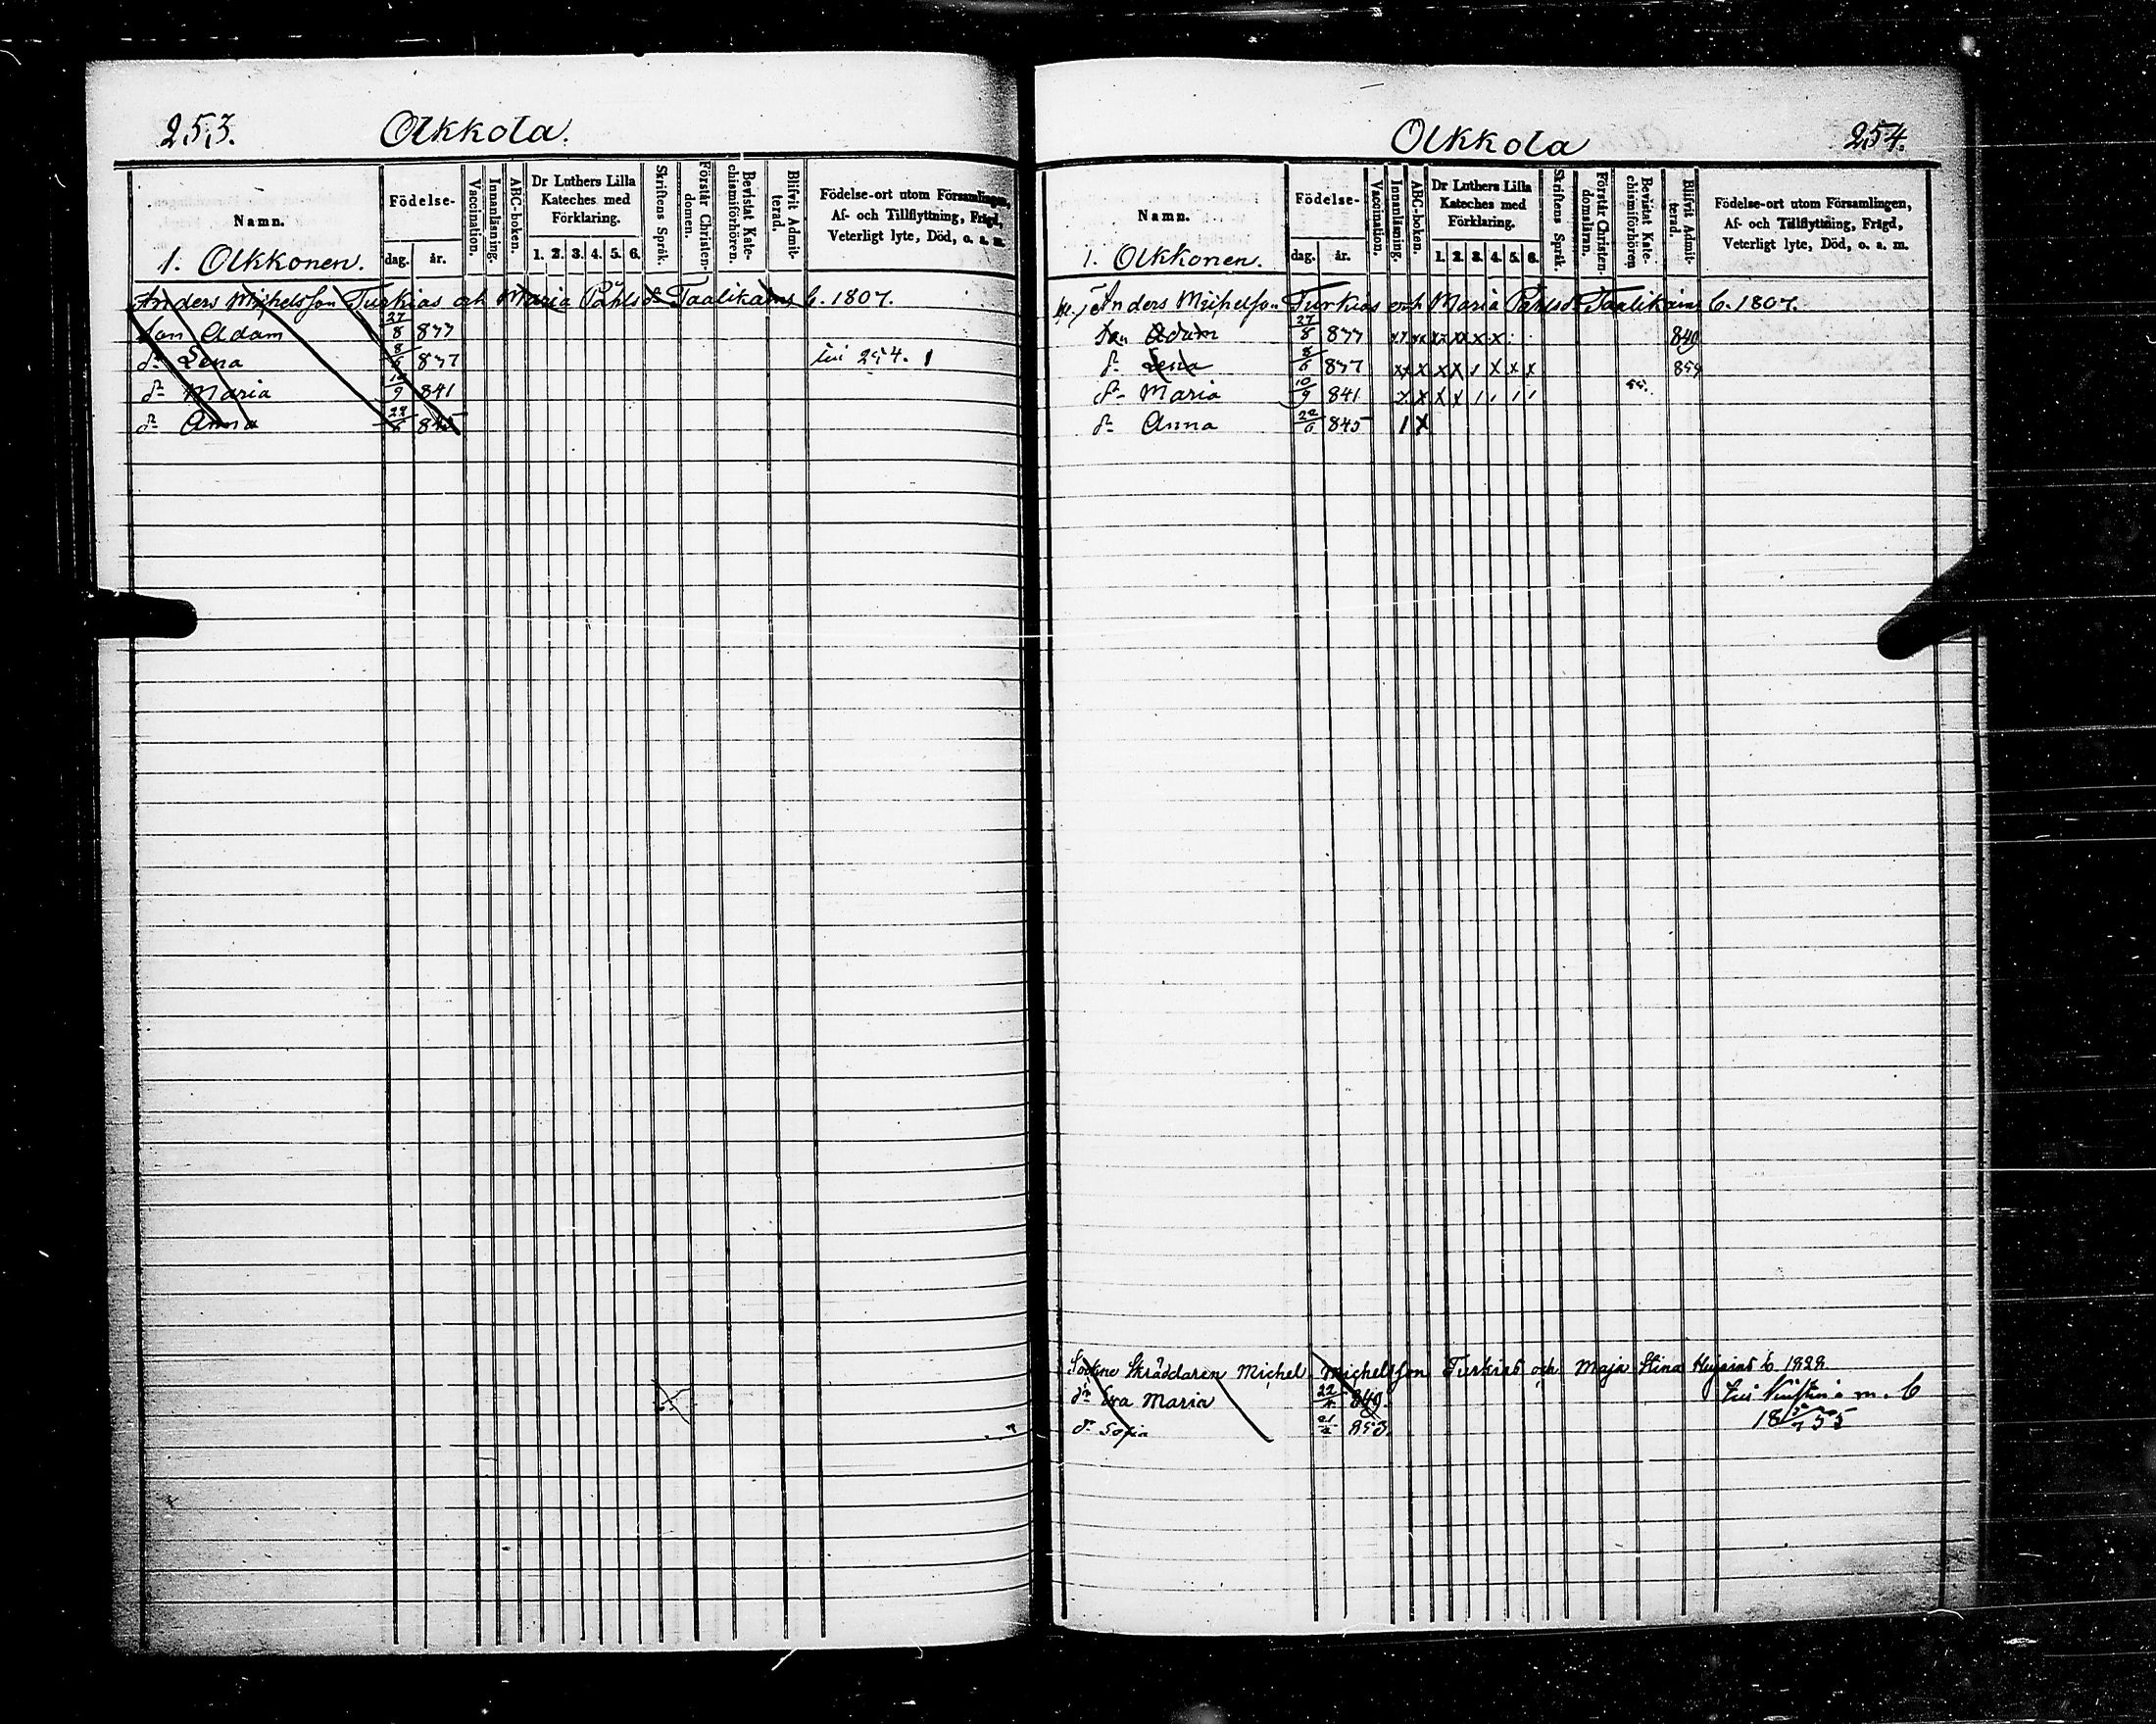 253. Olkkola.
Namn.
Födelse-
dag. år.
Vaccination.
Innanläsning.
ABC-boken.
Dr Luthers Lilla
Kateches med
Förklaring.
1. 2. 3. 4. 5. 6.
Skriftens Språk.
Förstår Christen-
domen.
Bevistat Kate-
chismiförhören.
Blifvit Admit-
terad.
Födelse-ort utom Församlingen,
Af- och Tillflyttning, Frägd,
Veterligt lyte, Död, o. s. m.
1. Olkkonen.
Anders Michelsson Turkias och Maria Påhlsdr Taalikains b. 1807.
Son Adam 27/8 837
dr Lena 8/6 837 254. 1
dr Maria 10/9 841
dr Anna 22/6 845
Olkkola 254.
Namn.
Födelse-
dag. år.
Vaccination.
Innanläsning.
ABC-boken.
Dr Luthers Lilla
Kateches med
Förklaring.
1. 2. 3. 4. 5. 6.
Skriftens Språk.
Förstår Christen-
domsläran.
Bevistat Kate-
chismiförhören
Blifvit Admit-
terad.
Födelse-ort utom Församlingen,
Af- och Tillflyttning, Frägd,
Veterligt lyte, Död, o. s. m.
1. Olkkonen.
Anders Michelson Turkias och Maria Påhlsdr Taalikains b. 1807.
Son Adam 27/8 837
dr Lena 8/6 837
dr Maria 10/9 841
dr Anna 22/6 845
Sockne Skräddaren Michel Michelsson Turkias och Maja Stina b. 1828
dr Eva Maria 849.
dr Sofia 853.